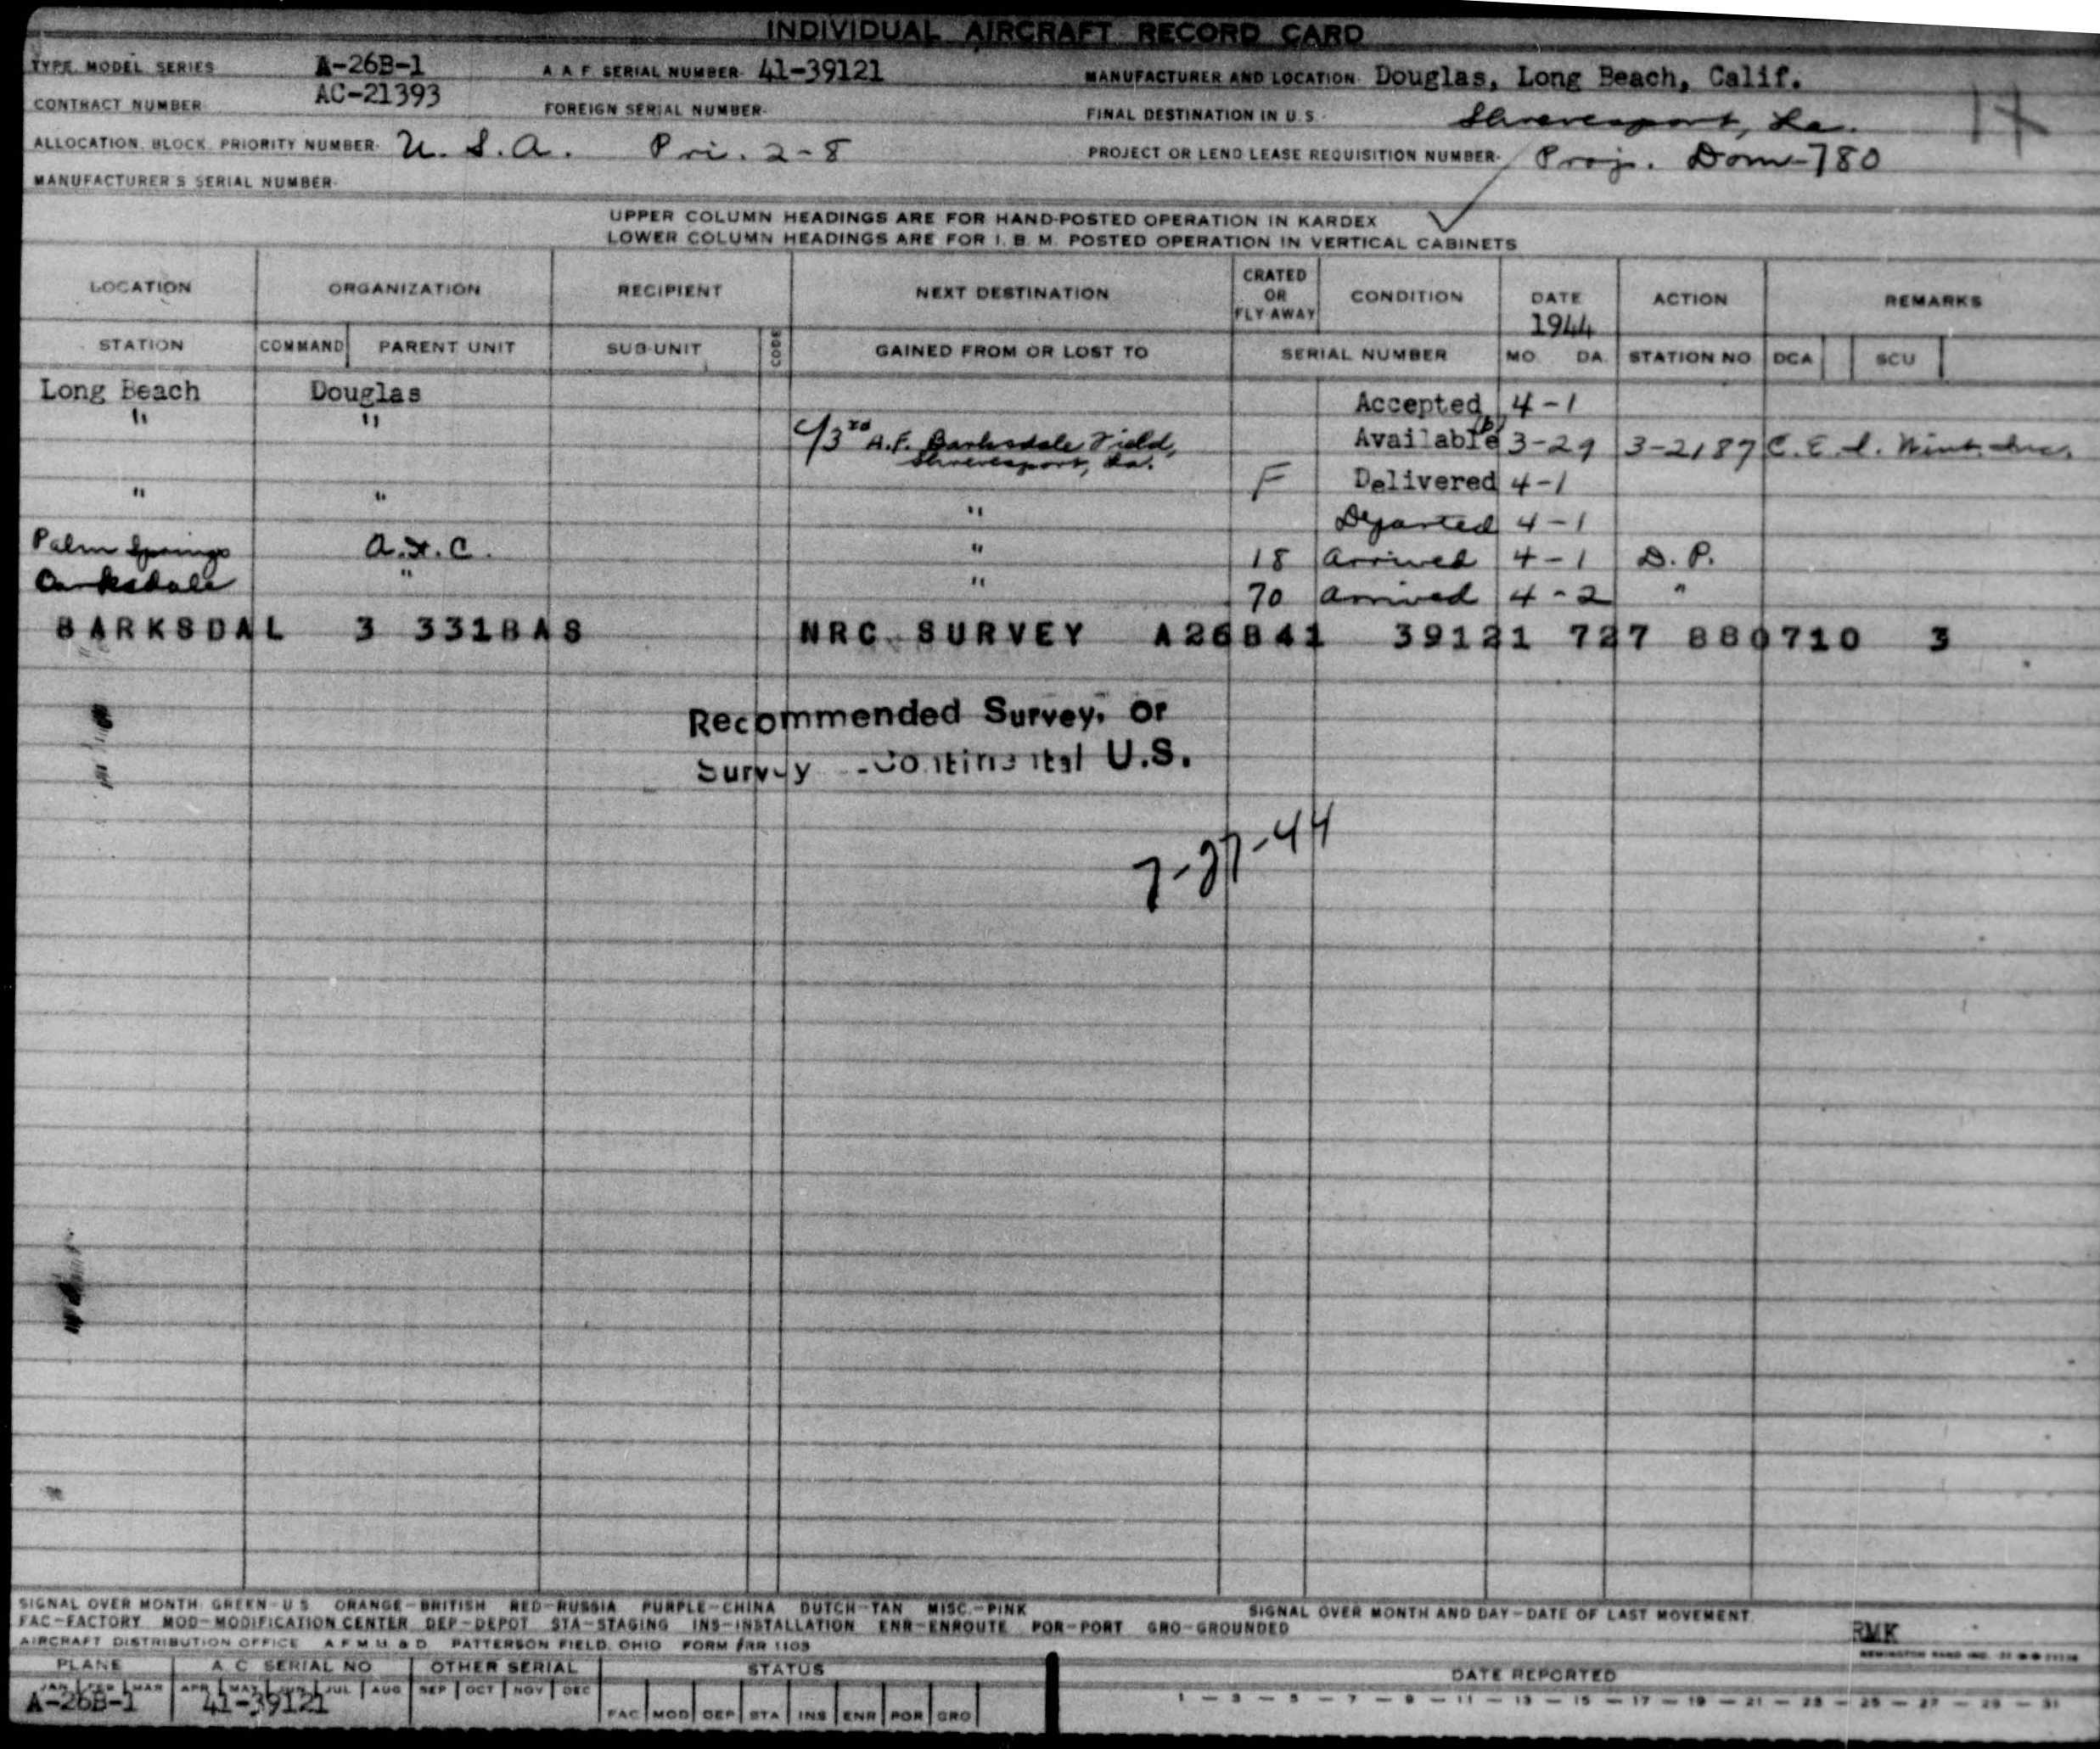 INDIVIDUAL AIRCRAFT RECORD CARD
TYPE, MODEL, SERIES A-26B-1 A A F SERIAL NUMBER- 41-39121 MANUFACTURER AND LOCATION- Douglas, Long Beach, Calif.
CONTRACT NUMBER AC-21393 FOREIGN SERIAL NUMBER- FINAL DESTINATION IN U.S.- Shreveport, La.
ALLOCATION, BLOCK, PRIORITY NUMBER- U. S. A. Pri. 2-8 PROJECT OR LEND LEASE REQUISITION NUMBER- Proj. Dom-780
MANUFACTURER'S SERIAL NUMBER-
UPPER COLUMN HEADINGS ARE FOR HAND-POSTED OPERATION IN KARDEX
LOWER COLUMN HEADINGS ARE FOR I. B. M. POSTED OPERATION IN VERTICAL CABINETS
LOCATION ORGANIZATION RECIPIENT NEXT DESTINATION CRATED OR FLY-AWAY CONDITION DATE 1944 ACTION REMARKS
STATION COMMAND PARENT UNIT SUB-UNIT CODE GAINED FROM OR LOST TO SERIAL NUMBER MO. DA. STATION NO DCA SCU
Long Beach Douglas Accepted 4-1
" " 3rd A.F. Barksdale Field, Available 3-29 3-2187 C.E.
Shreveport, La.
" " F Delivered 4-1
" Departed 4-1
Palm Springs " 18 Arrived 4-1 D.P.
Barksdale " " 70 Arrived 4-2 "
BARKSDAL 3 331BAS NRC SURVEY A26B41 39121 727 880710 3
Recommended Survey, or
Survey - Continental U.S.
7-27-44
SIGNAL OVER MONTH GREEN-U S ORANGE-BRITISH RED-RUSSIA PURPLE-CHINA DUTCH-TAN MISC.-PINK SIGNAL OVER MONTH AND DAY-DATE OF LAST MOVEMENT
FAC-FACTORY MOD-MODIFICATION CENTER DEP-DEPOT STA-STAGING INS-INSTALLATION ENR-ENROUTE POR-PORT GRO-GROUNDED RMK
AIRCRAFT DISTRIBUTION OFFICE PATTERSON FIELD, OHIO FORM
PLANE A C SERIAL NO OTHER SERIAL STATUS DATE REPORTED
JAN FEB MAR APR MAY JUN JUL AUG SEP OCT NOV DEC 1 - 3 - 5 - 7 - 9 - 11 - 13 - 15 - 17 - 19 - 21 - 23 - 25 - 27 - 29 - 31
A-26B-1 41-39121 FAC MOD DEP STA INS ENR POR GRO